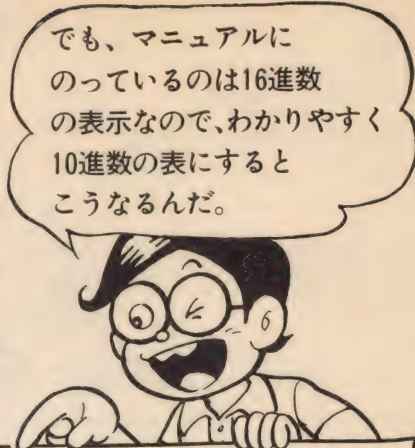 でも、マニュアルに
のっているのは16進数
の表示なので、わかりやすく
10進数の表にすると
こうなるんだ。